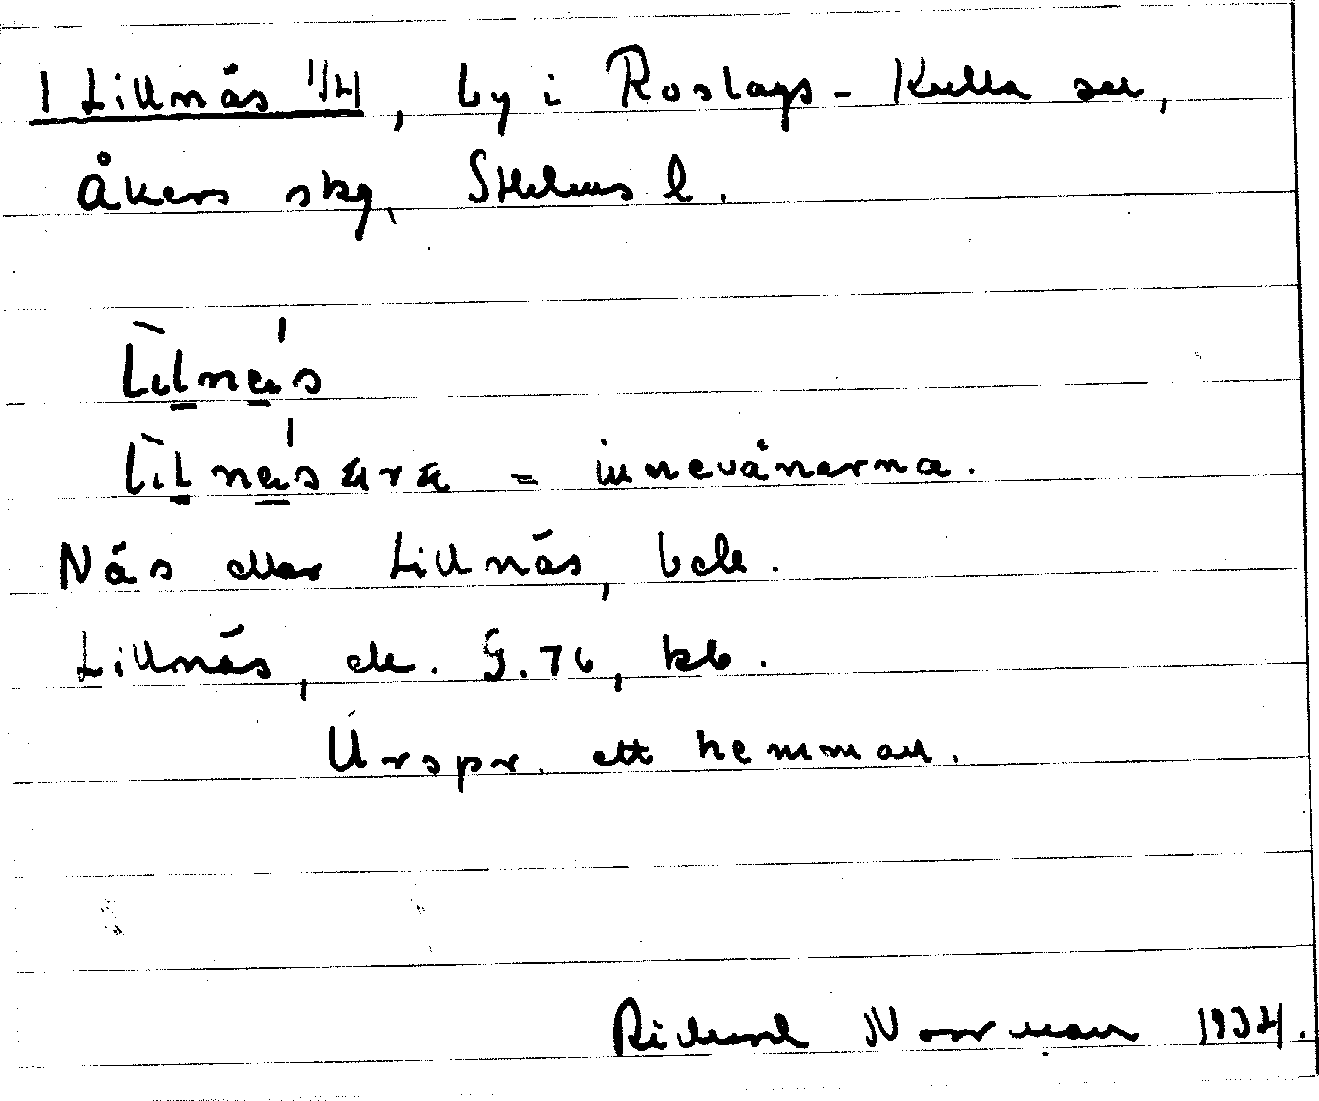 1 Lillnäs 1/4, by i Roslags-Kulla sn,
Åkers skg, Sthlms l.
Lilnäs
Lilnäsara = innevånarna.
Näs eller Lillnäs, bek.
Lillnäs, ek. G. 76, kb.
Urspr. ett hemman.
Richard Norrman 1934.